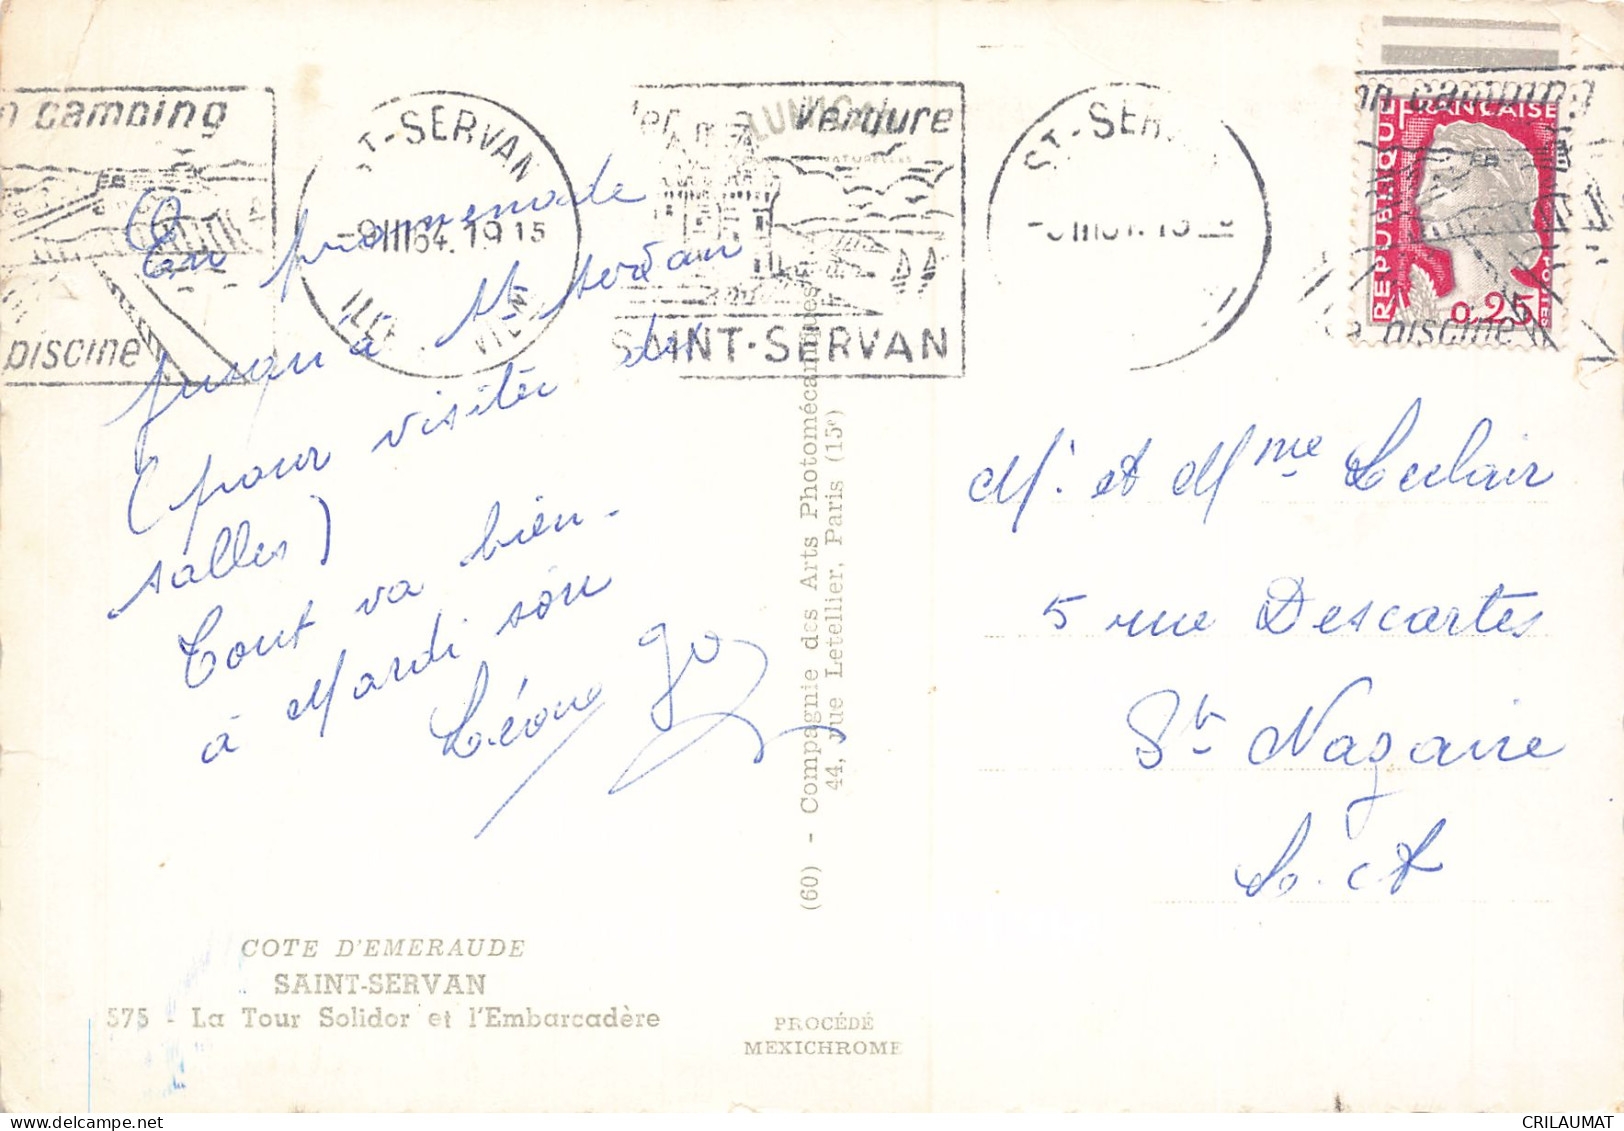 n camping
piscine
ST-SERVAN
-9 III 64. 19 15
verdure
SAINT-SERVAN
ST-SER
n camping
piscine
REPUBLIQUE FRANÇAISE
POSTES
0,25
En promenade
jusqu'à St Servan
(pour visiter des
salles)
Tout va bien.
à Mardi soir
M. et Mme Leclair
5 rue Descartes
St Nazaire
L. At
(60) - Compagnie des Arts Photomécaniques
44, rue Letellier, Paris (15e)
COTE D'EMERAUDE
SAINT-SERVAN
575 - La Tour Solidor et l'Embarcadère
PROCÉDÉ
MEXICHROME
CRILAUMAT